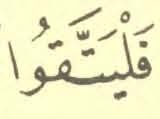 فَلْيَتَّقُوا